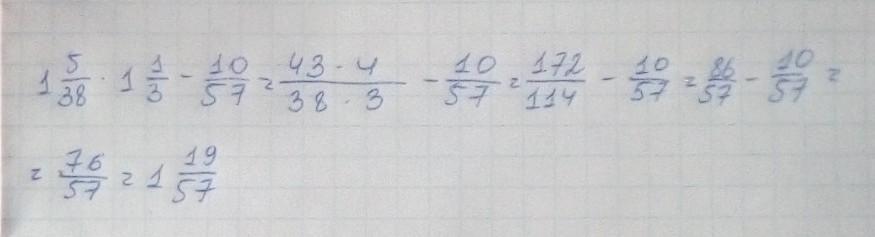 1 5/38 · 1 1/3 - 10/57 = 43 · 4/38 · 3 - 10/57 = 172/114 - 10/57 = 86/57 - 10/57 =
= 76/57 = 1 19/57